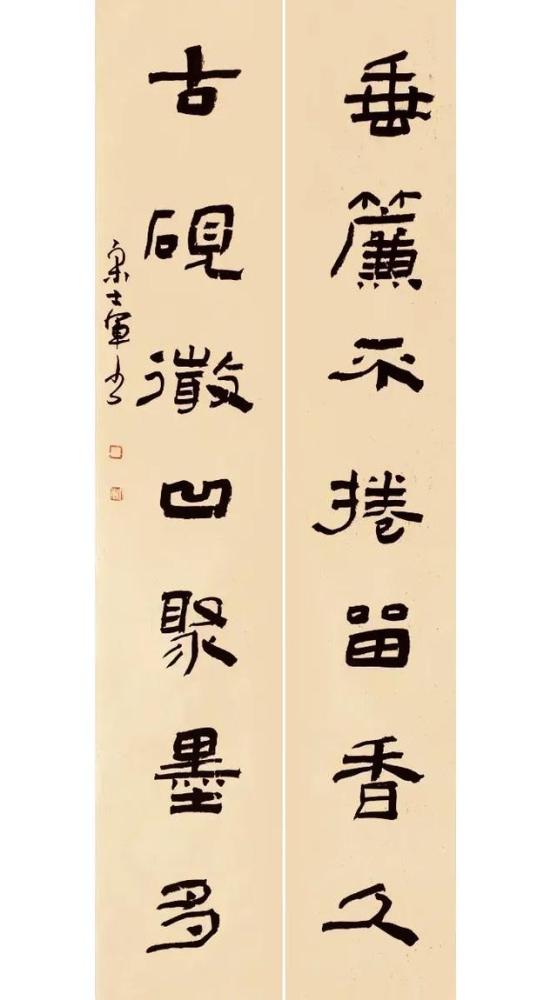 垂簾不捲留香久
古硯微凹聚墨多
士軍书